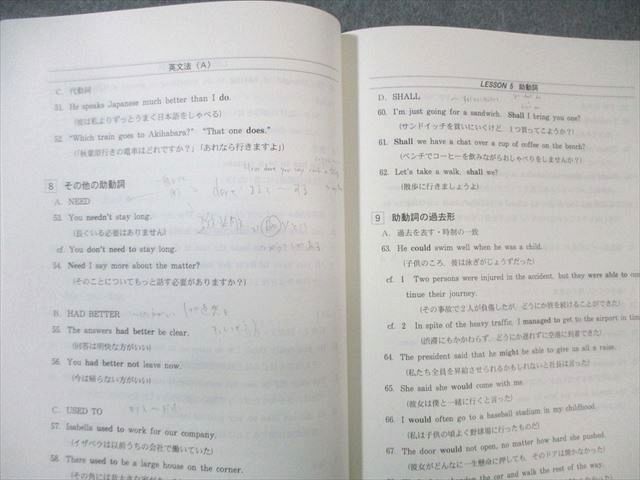 英文法 (A)
C. 代動詞
51. He speaks Japanese much better than I do.
(彼は私よりずっとうまく日本語をしゃべる)
52. “Which train goes to Akihabara?” “That one does.”
(「秋葉原行きの電車はどれですか？」「あれなら行きますよ」)
8 その他の助動詞
A. NEED
53. You needn't stay long.
(長くいる必要はありません)
cf. You don't need to stay long.
54. Need I say more about the matter?
(そのことについてもっと話す必要がありますか？)
B. HAD BETTER
55. The answers had better be clear.
(回答は明快な方がいい)
56. You had better not leave now.
(今は帰らない方がいい)
C. USED TO
57. Isabella used to work for our company.
(イザベラは以前うちの会社で働いていた)
58. There used to be a large house on the corner.
LESSON 5 助動詞
D. SHALL
60. I'm just going for a sandwich. Shall I bring you one?
(サンドイッチを買いにいくけど、1つ買ってこようか？)
61. Shall we have a chat over a cup of coffee on the bench?
(ベンチでコーヒーを飲みながらおしゃべりをしませんか？)
62. Let's take a walk, shall we?
(散歩に行きましょうよ)
9 助動詞の過去形
A. 過去を表す・時制の一致
63. He could swim well when he was a child.
(子供のころ、彼は泳ぎがじょうずだった)
cf. 1 Two persons were injured in the accident, but they were able to
tinue their journey.
(その事故で2人が負傷したが、どうにか旅を続けることができた)
cf. 2 In spite of the heavy traffic, I managed to get to the airport in
(渋滞にもかかわらず、どうにか遅れずに空港に到着できた)
64. The president said that he might be able to give us all a raise.
(私たち全員を昇給させられるかもしれないと社長は言った)
65. She said she would come with me.
(彼女は僕と一緒に行くと言った)
66. I would often go to a baseball stadium in my childhood.
(私は子供の頃よく野球場に行ったものだ)
67. The door would not open, no matter how hard she pushed.
(彼女がどんなに一生懸命に押しても、そのドアは開かなかった)
the car and walk the rest of the way.